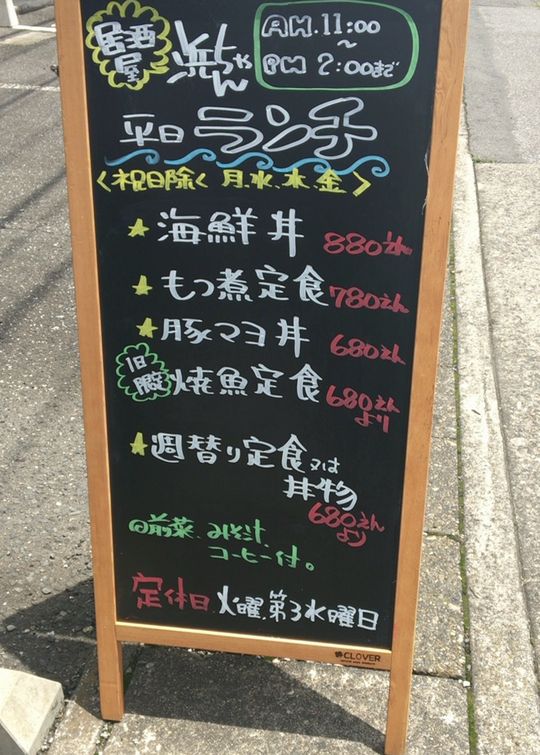 居酒屋 浜ちゃん
A.M. 11:00
~
P.M 2:00まで
平日ランチ
<祝日除く 月.水.木.金>
★海鮮丼 880えん
★もつ煮定食 780えん
★豚マヨ丼 680えん
焼魚定食 680えんより
★週替り定食又は
丼物
680えんより
前菜、みそ汁、
コーヒー付。
定休日 火曜.第3水曜日
CLOVER